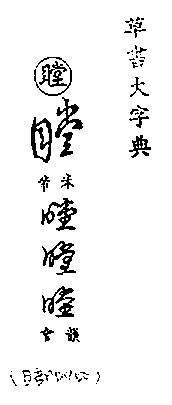 草書大字典
瞠
瞠
米芾
瞠
瞠
瞠
草韻